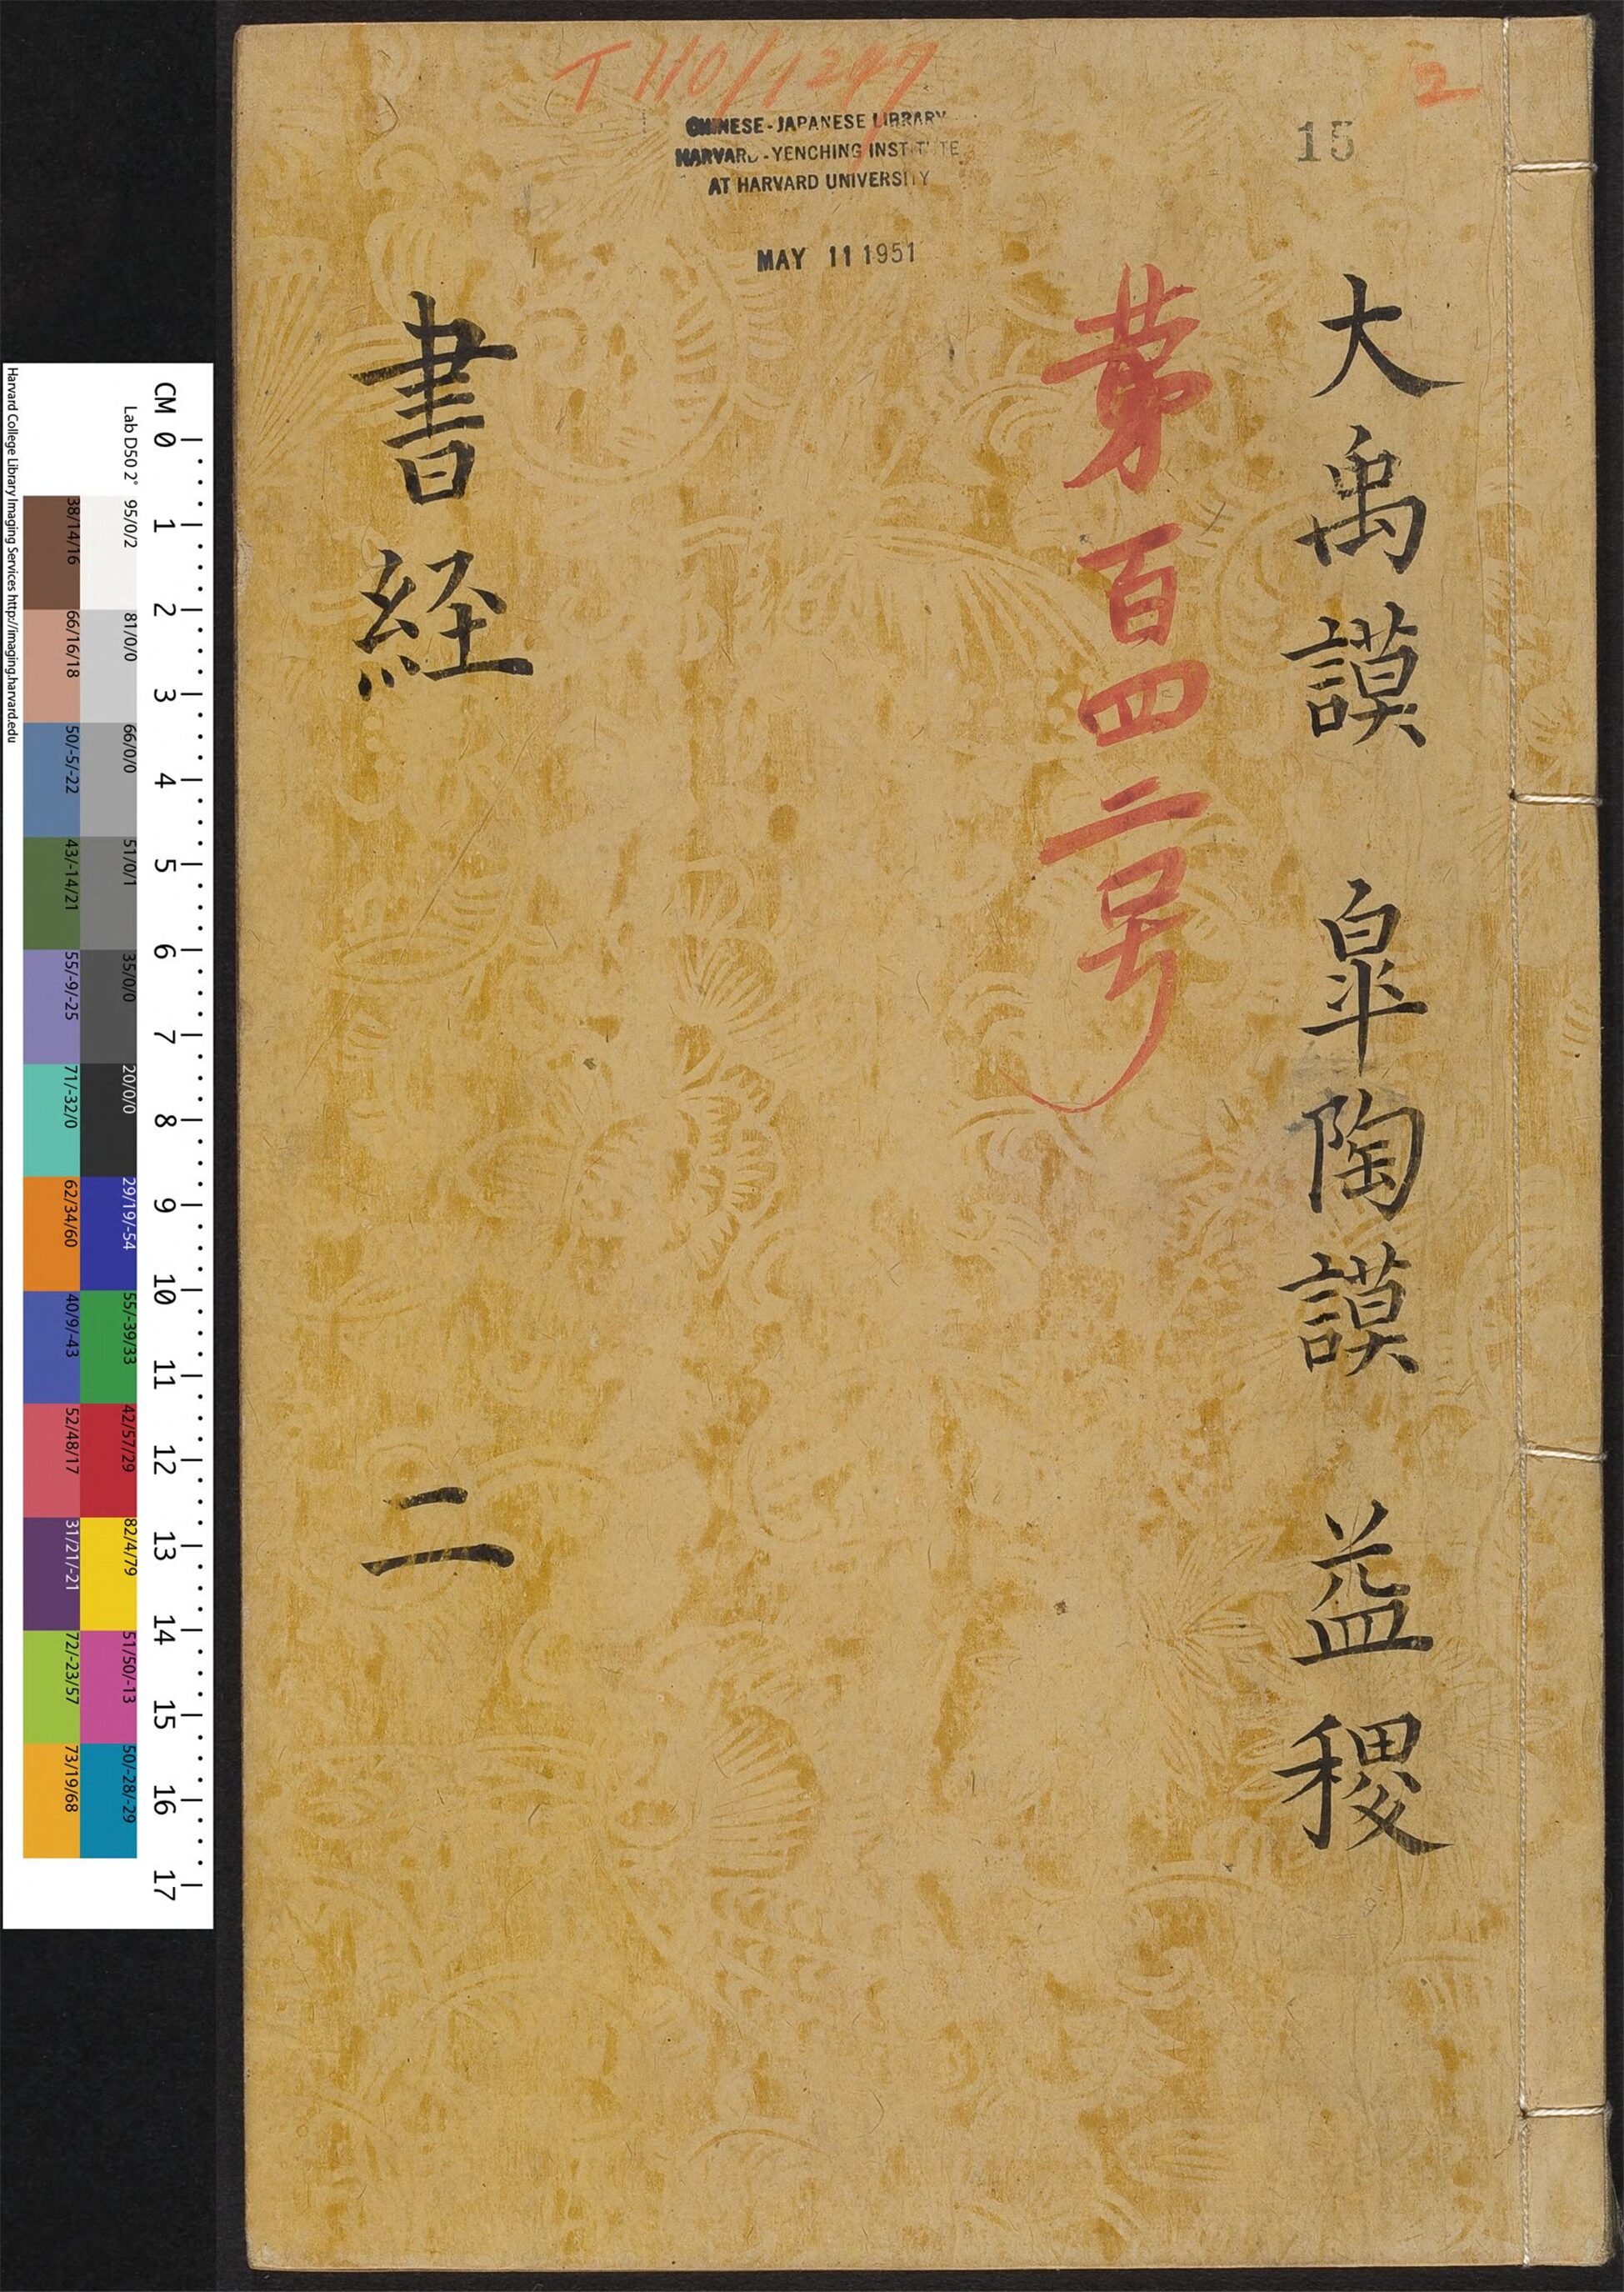 T 110/1247
2
15
CHINESE-JAPANESE LIBRARY
HARVARD-YENCHING INSTITUTE
AT HARVARD UNIVERSITY
MAY 11 1951
大禹謨 皐陶謨 益稷
第百四二号
書経 二
CM 0 1 2 3 4 5 6 7 8 9 10 11 12 13 14 15 16 17
Lab D50 2° 95/0/2 81/0/0 66/0/0 51/0/1 35/0/0 20/0/0 29/19/-54 55/-39/33 42/57/29 82/4/79 51/50/-13 50/-28/-29
38/14/16 66/16/18 50/-5/-22 43/-14/21 55/-9/-25 71/-32/0 62/34/60 40/9/-43 52/48/17 31/21/-21 72/-23/57 73/19/68
Harvard College Library Imaging Services http://imaging.harvard.edu